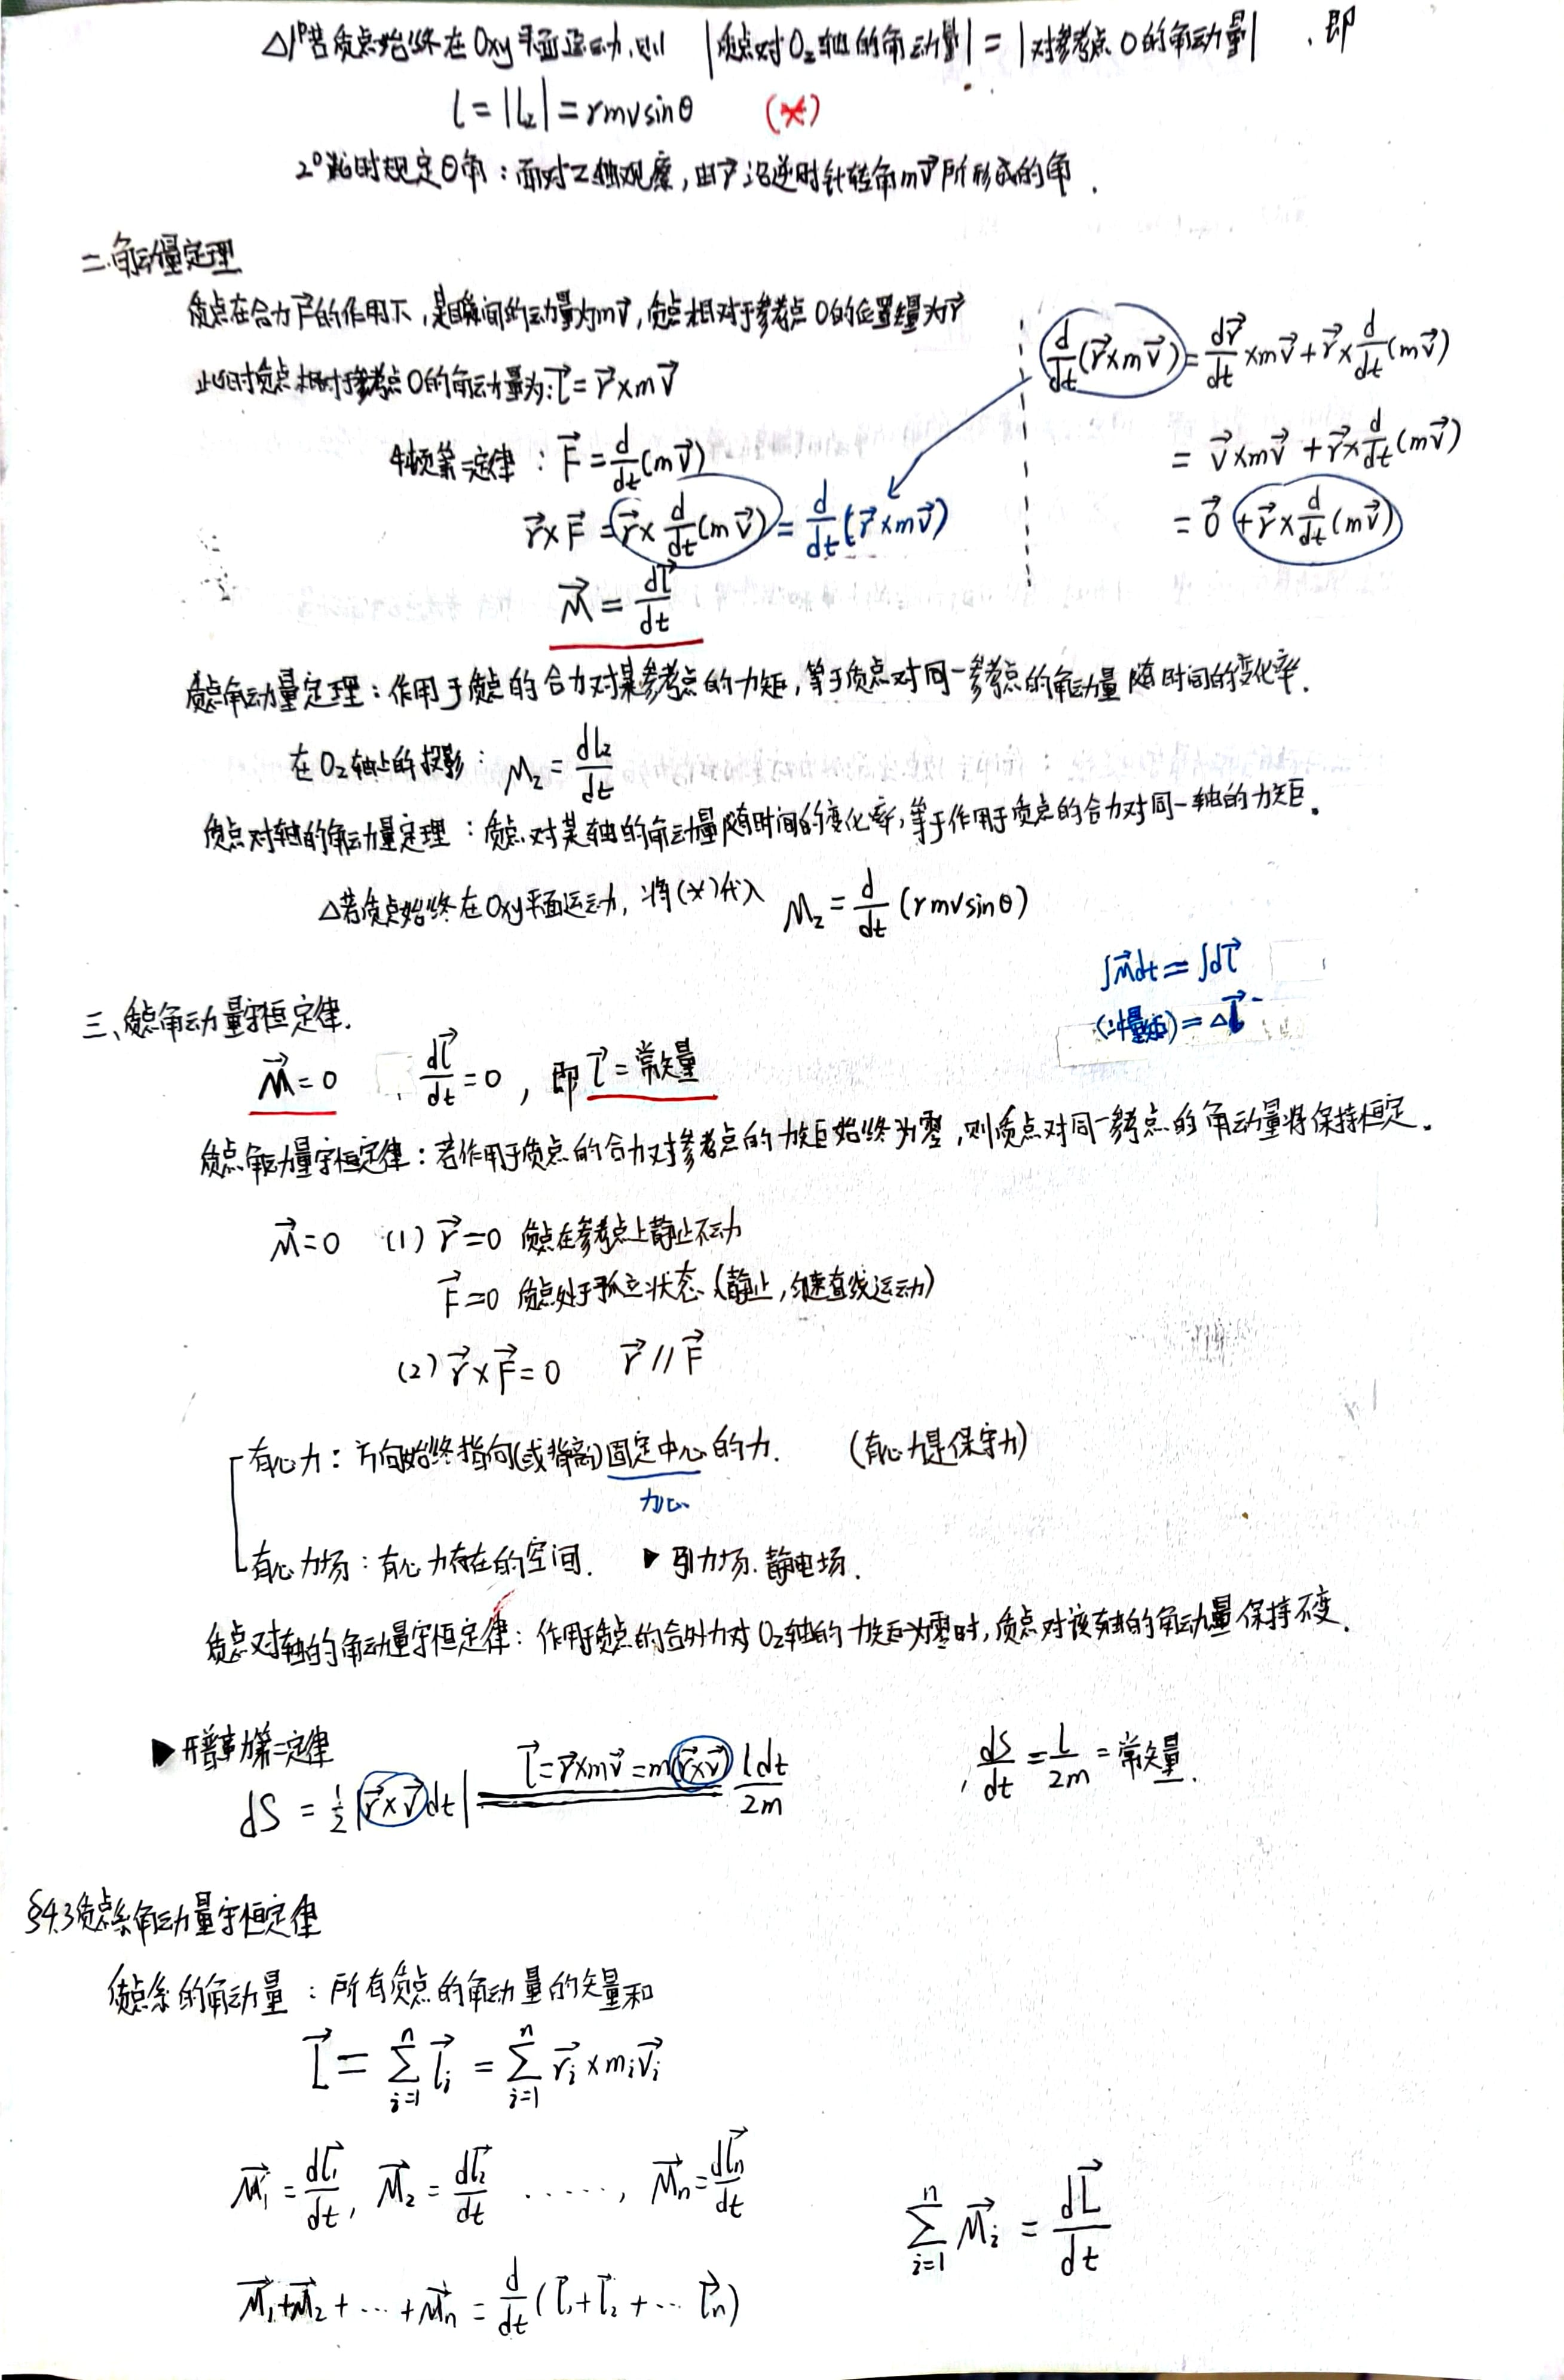 △1°若质点始终在Oxy平面运动,则 |质点对Oz轴的角动量| = |对参考点O的角动量| ,即
l = |lz| = rmvsinθ (*)
2°此时规定θ角：面对z轴观察,由r⃗沿逆时针转角mv⃗所形成的角.
二.角动量定理
质点在合力F⃗的作用下,某瞬间的动量为mv⃗,质点相对于参考点O的位置矢量为r⃗
此时质点相对于参考点O的角动量为:l⃗ = r⃗×mv⃗
牛顿第二定律：F⃗ = d/dt(mv⃗)
r⃗×F⃗ = r⃗×d/dt(mv⃗) = d/dt(r⃗×mv⃗)
M⃗ = dl⃗/dt
d/dt(r⃗×mv⃗) = dr⃗/dt×mv⃗ + r⃗×d/dt(mv⃗)
= v⃗×mv⃗ + r⃗×d/dt(mv⃗)
= 0⃗ + r⃗×d/dt(mv⃗)
质点角动量定理：作用于质点的合力对某参考点的力矩,等于质点对同一参考点的角动量随时间的变化率.
在Oz轴上的投影：Mz = dlz/dt
质点对轴的角动量定理：质点对某轴的角动量随时间的变化率,等于作用于质点的合力对同一轴的力矩。
△若质点始终在Oxy平面运动,将(*)代入 Mz = d/dt(rmvsinθ)
∫M⃗dt = ∫dl⃗
(冲量矩) = Δl⃗
三、质点角动量守恒定律.
M⃗ = 0 , dl⃗/dt = 0 , 即 l⃗ = 常矢量
质点角动量守恒定律：若作用于质点的合力对参考点的力矩始终为零,则质点对同一参考点的角动量将保持恒定。
M⃗ = 0 (1) r⃗ = 0 质点在参考点上静止不动
F⃗ = 0 质点处于孤立状态(静止,匀速直线运动)
(2) r⃗×F⃗ = 0 r⃗∥F⃗
有心力：方向始终指向(或背离)固定中心的力. (有心力是保守力)
力心
有心力场：有心力存在的空间. ▶引力场.静电场.
质点对轴的角动量守恒定律：作用于质点的合外力对Oz轴的力矩为零时,质点对该轴的角动量保持不变.
▶开普勒第二定律
dS = ½|r⃗×v⃗dt| = l⃗=r⃗×mv⃗=m(r⃗×v⃗) = ldt/2m , dS/dt = l/2m = 常矢量.
§4.3质点系角动量守恒定律
质点系的角动量：所有质点的角动量的矢量和
L⃗ = ∑ⁿᵢ₌₁ l⃗ᵢ = ∑ⁿᵢ₌₁ r⃗ᵢ×mᵢv⃗ᵢ
M⃗₁ = dl⃗₁/dt, M⃗₂ = dl⃗₂/dt ......, M⃗n = dl⃗n/dt
M⃗₁+M⃗₂+…+M⃗n = d/dt(l⃗₁+l⃗₂+…l⃗n)
∑ⁿᵢ₌₁ M⃗ᵢ = dL⃗/dt